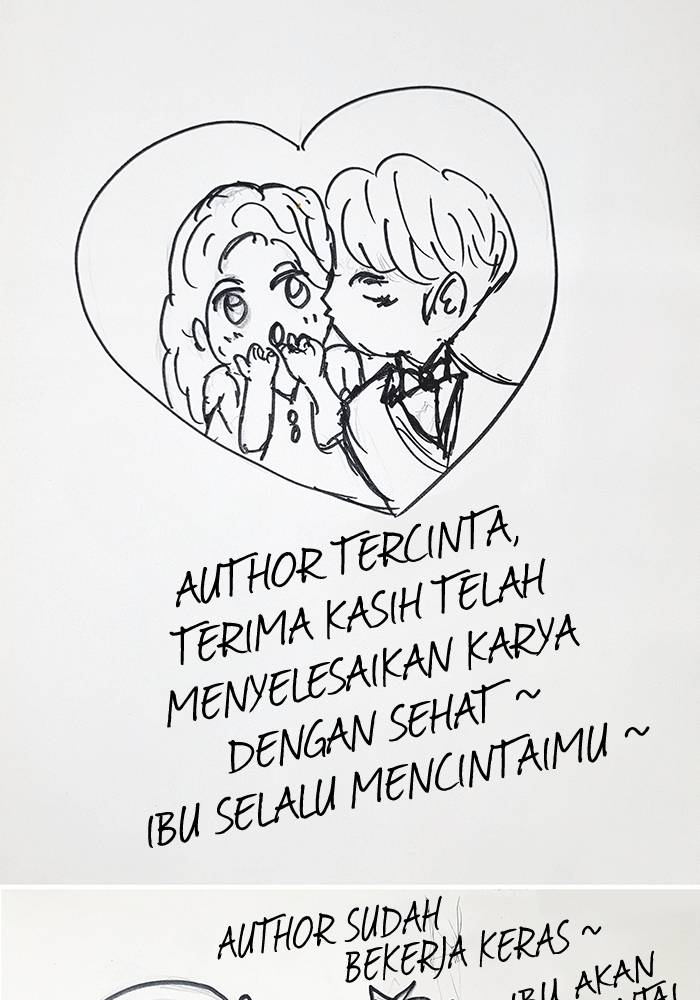 AUTHOR TERCINTA,
TERIMA KASIH TELAH
MENYELESAIKAN KARYA
DENGAN SEHAT ~
IBU SELALU MENCINTAIMU ~
AUTHOR SUDAH
BEKERJA KERAS ~
IBU AKAN